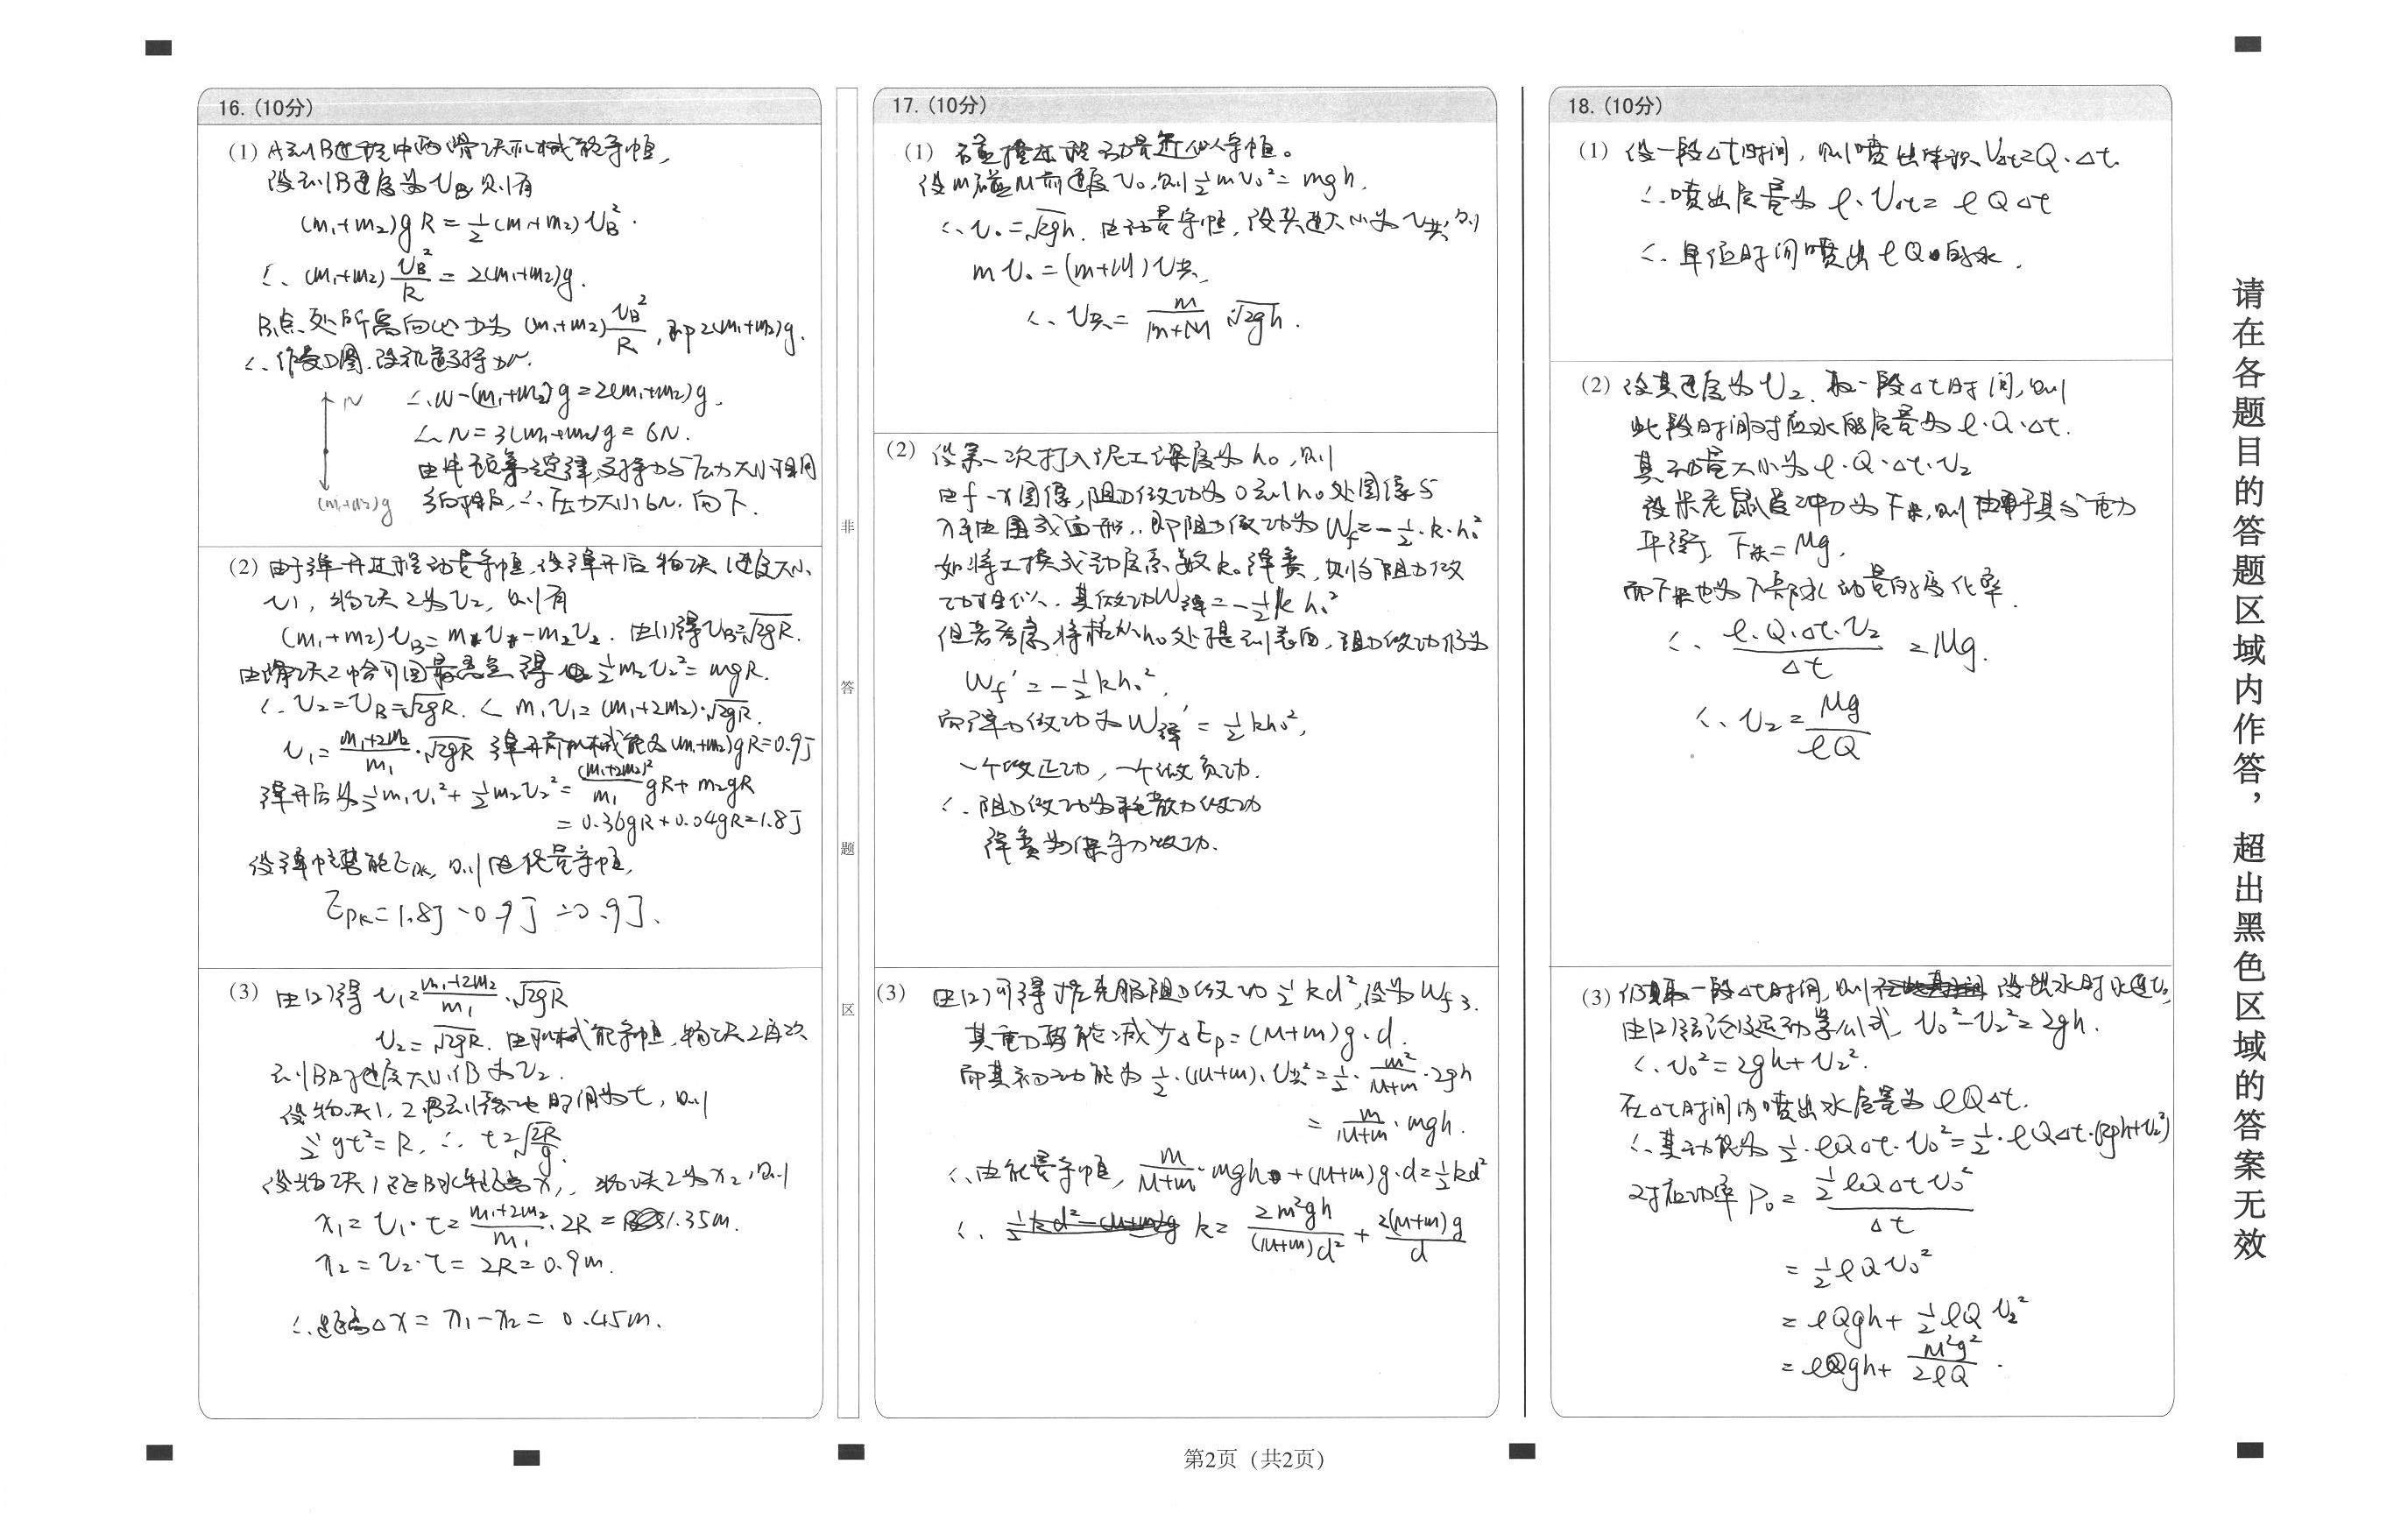 16. (10分)
(1) A到B过程中两滑块机械能守恒,
设到B速度为v_B, 则有
(m₁+m₂)gR = ½(m₁+m₂)v_B².
∴ (m₁+m₂) v_B²/R = 2(m₁+m₂)g.
B点处所需向心力为 (m₁+m₂) v_B²/R, 即2(m₁+m₂)g.
∴ 作受力图. 设轨道支持力N.
∴ N-(m₁+m₂)g = 2(m₁+m₂)g.
N
∴ N = 3(m₁+m₂)g = 6N.
由牛顿第三定律, 支持力与压力大小相同
(m₁+m₂)g
方向相反, ∴ 压力大小6N. 向下.
(2) 由于弹开过程动量守恒, 设弹开后物块1速度大小
v₁, 物块2为v₂, 则有
(m₁+m₂)v_B = m₁v₁-m₂v₂. 由(1)得v_B=√2gR.
由滑块2恰可回最高点, 得 ½m₂v₂² = mgR.
∴ v₂=v_B=√2gR. ∴ m₁v₁=(m₁+2m₂)·√2gR.
v₁= (m₁+2m₂)/m₁ ·√2gR 弹开前机械能为(m₁+m₂)gR=0.9J
弹开后为½m₁v₁²+½m₂v₂² = (m₁+2m₂)²/m₁ gR+m₂gR
= 0.36gR+0.04gR=1.8J
设弹性势能E_pk, 则由能量守恒,
E_pk=1.8J-0.9J=0.9J.
(3) 由(2)得 v₁= (m₁+2m₂)/m₁ ·√2gR
v₂=√2gR. 由机械能守恒, 物块2再次
到B时速度大小仍为v₂.
设物块1, 2再到落地时间为t, 则
½gt²=R, ∴ t=√(2R/g).
设物块1距B水平距离x₁, 物块2为x₂, 则
x₁=v₁·t= (m₁+2m₂)/m₁ ·2R = 1.35m.
x₂=v₂·t=2R=0.9m.
∴ 距离Δx = x₁-x₂ = 0.45m.
非
答
题
区
17. (10分)
(1) 在碰撞过程动量近似守恒。
设m碰M前速度v₀, 则½mv₀² = mgh.
∴ v₀=√2gh. 由动量守恒, 设共速大小为v共, 则
mv₀=(m+M)v共,
∴ v共= m/(m+M) √2gh.
(2) 设第一次打入泥土深度为h₀, 则
由f-x图像, 阻力做功为0到h₀处图像与
x轴围成面积, 即阻力做功为W_f=-½·k·h₀²
如将土换成劲度系数k₀弹簧, 则与阻力做
功相似, 其做功W弹=-½kh₀²
但若考虑将桩从h₀处提到表面, 阻力做功仍为
W_f'=-½kh₀²,
而弹力做功为W弹'=½kh₀²,
一个做正功, 一个做负功.
∴ 阻力做功为耗散力做功
弹簧为保守力做功.
(3) 由(2)可得桩克服阻力做功½kd², 设为W_f3.
其重力势能减少ΔE_p=(M+m)g·d.
而其初动能为½·(M+m)·v共²=½· m²/(M+m) ·2gh
= m/(M+m) ·mgh.
∴ 由能量守恒, m/(M+m) ·mgh+(M+m)g·d=½kd²
∴ k= 2m²gh/((M+m)d²) + 2(M+m)g/d
18. (10分)
(1) 设一段Δt时间, 则喷出体积V_Δt=Q·Δt.
∴ 喷出质量为ρ·V_Δt=ρQΔt
∴ 单位时间喷出ρQ的水.
(2) 设其速度为v₂. 取一段Δt时间, 则
此段时间对应水的质量为ρ·Q·Δt.
其动量大小为ρ·Q·Δt·v₂
设米老鼠受冲力为F米, 则由于其与重力
平衡, F米=Mg,
而F米也为下部水动量的变化率.
∴ ρ·Q·Δt·v₂/Δt =Mg.
∴ v₂= Mg/ρQ
(3) 仍取一段Δt时间, 则 设出水时水速v₀,
由(2)结论及运动学公式, v₀²-v₂²=2gh.
∴ v₀²=2gh+v₂².
在Δt时间内喷出水质量为ρQΔt.
∴ 其动能为½·ρQΔt·v₀²=½·ρQΔt·(2gh+v₂²)
对应功率P₀= ½ρQΔtv₀²/Δt
= ½ρQv₀²
= ρQgh+½ρQv₂²
= ρQgh+ M²g²/2ρQ.
请在各题目的答题区域内作答，超出黑色区域的答案无效
第2页（共2页）